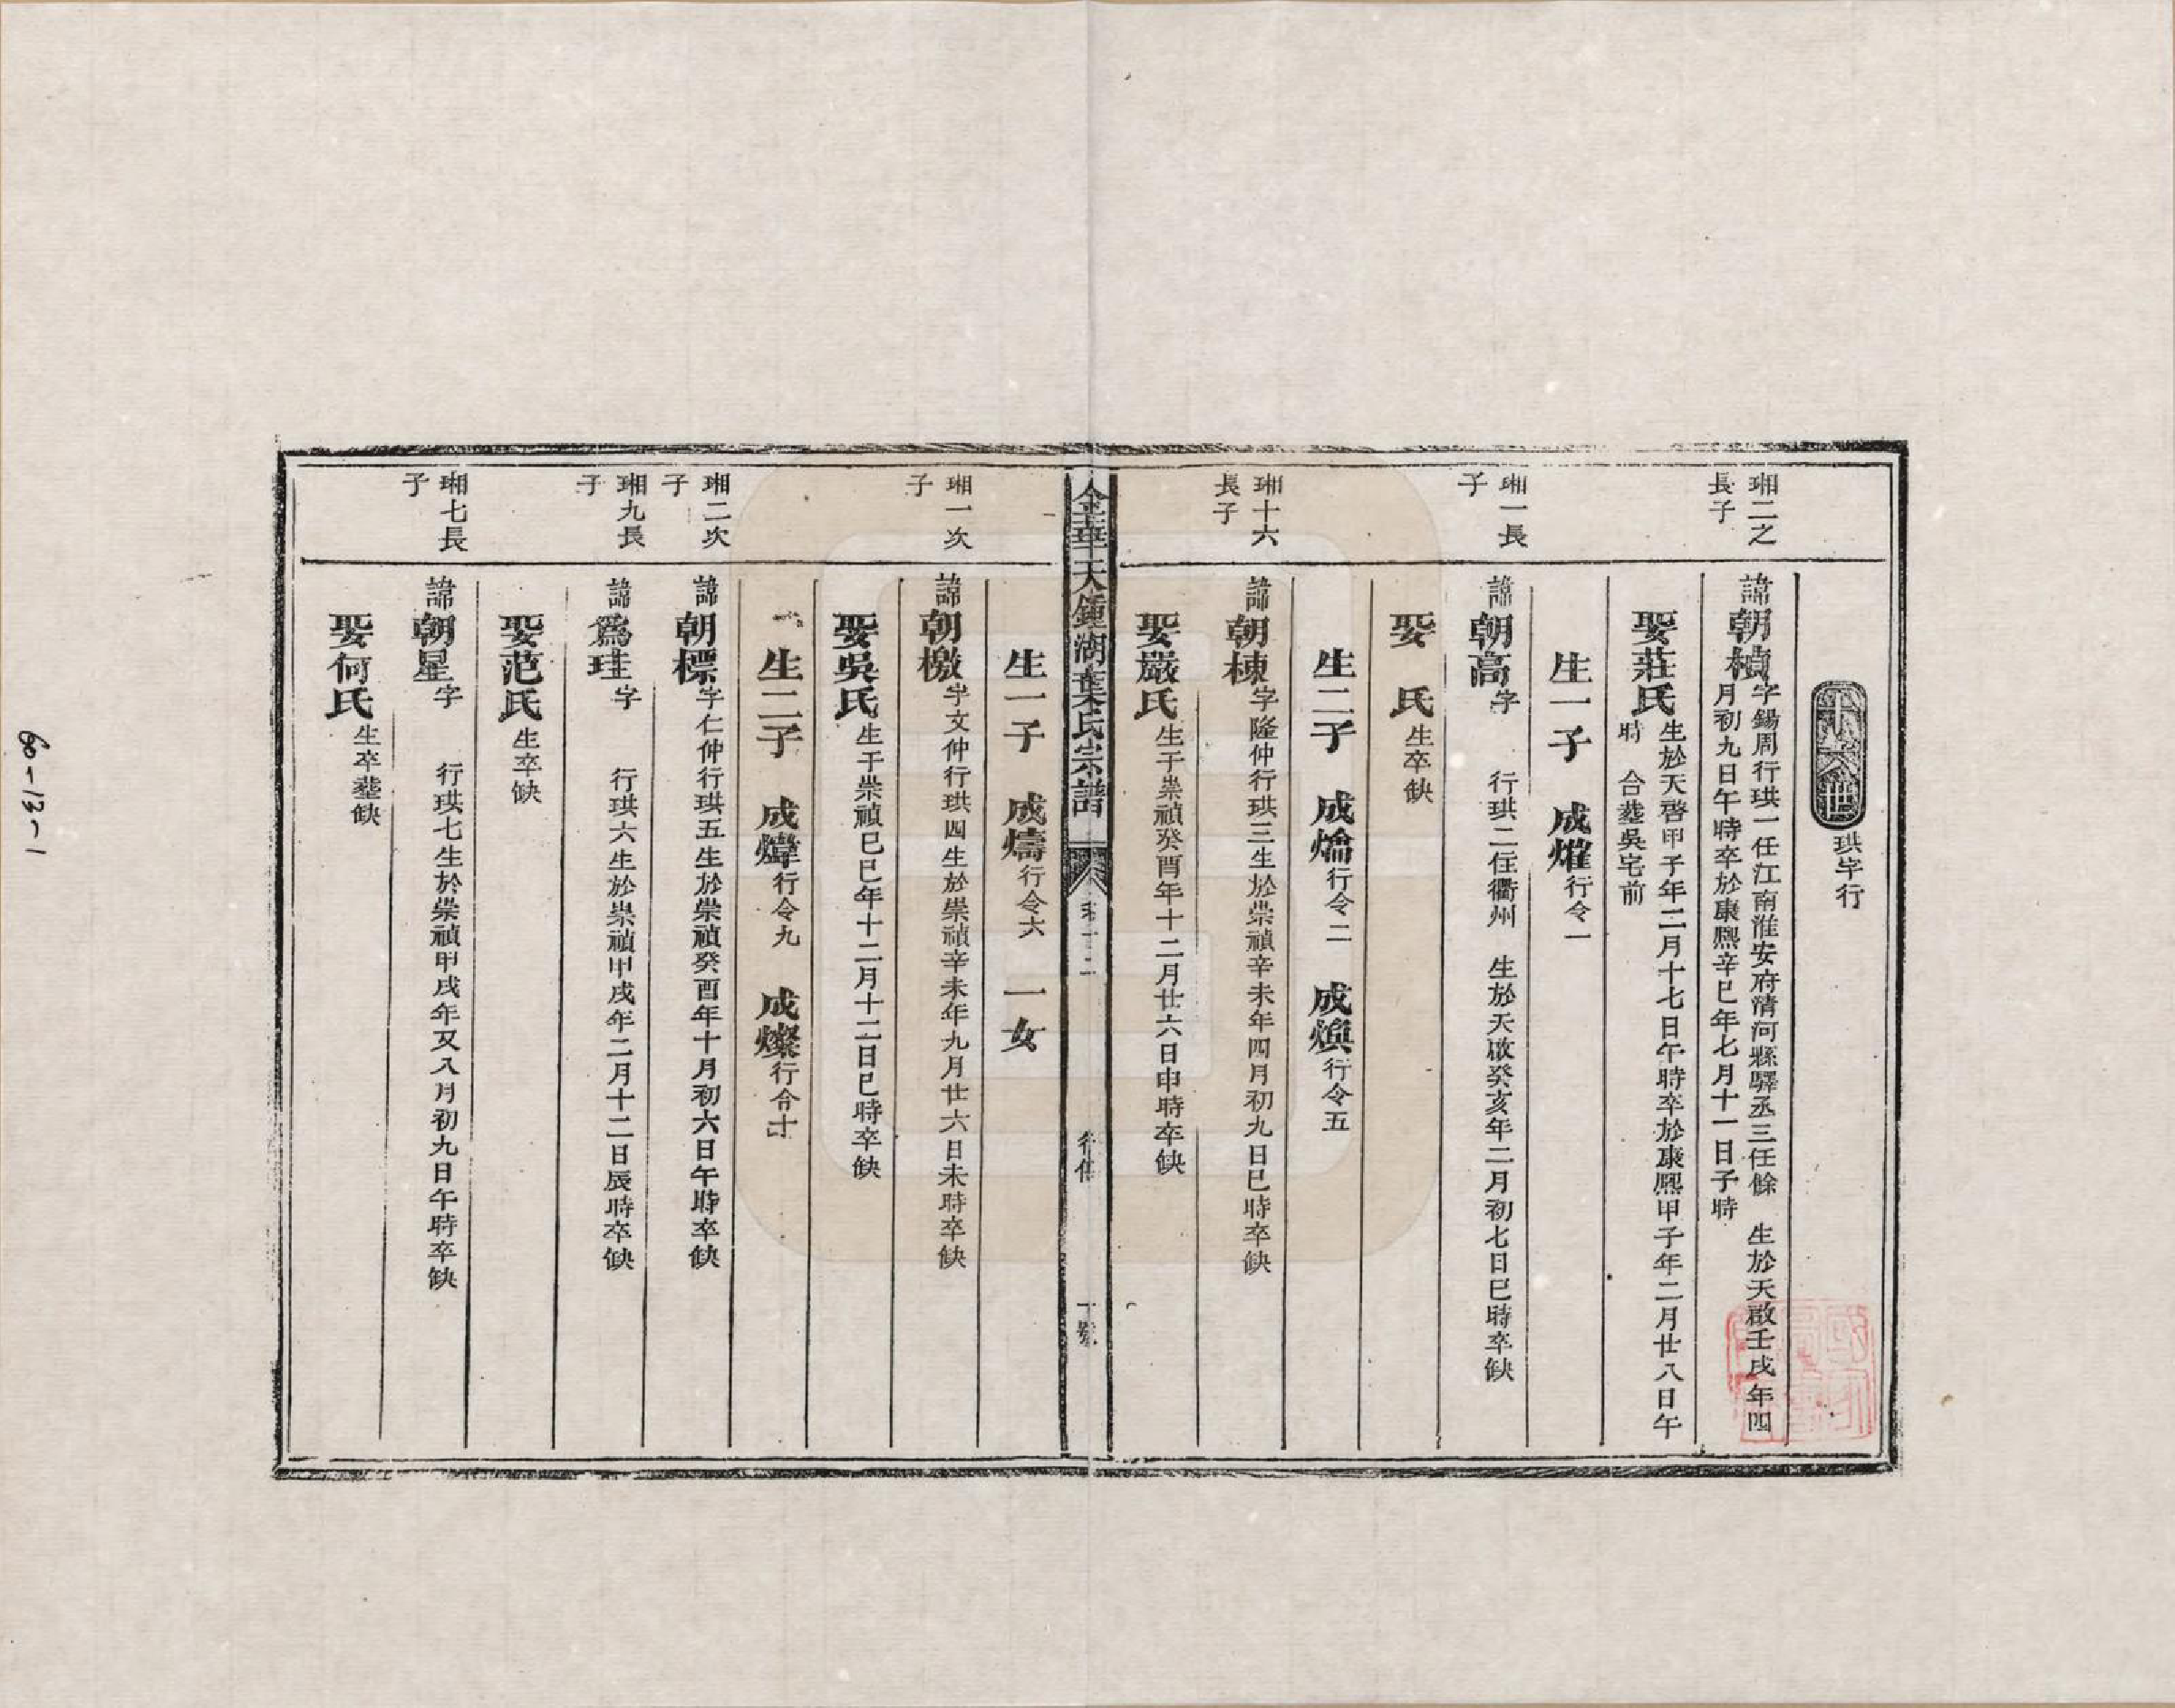 珙字行
瑚二之長子
諱朝楨字錫周行珙一任江南淮安府清河縣驛丞三任餘 生於天啟壬戌年四月初九日午時卒於康熙辛巳年七月十一日子時
娶莊氏生於天啓甲子年二月十七日午時卒於康熙甲子年二月廿八日午時 合塟吳宅前
生一子 成燿行令一
瑚一長子
諱朝高字 行珙二住衢州 生於天啟癸亥年二月初七日巳時卒缺
娶 氏生卒缺
生二子 成爚行令二 成煥行令五
瑚十六長子
諱朝棟字隆仲行珙三生於崇禎辛未年四月初九日巳時卒缺
娶嚴氏生于崇禎癸酉年十二月廿六日申時卒缺
金華天鍾湖葉氏宗譜
卷十二
行傳
一號
生一子 成燽行令六 一女
瑚一次子
諱朝檄字文仲行珙四生於崇禎辛未年九月廿六日未時卒缺
娶吳氏生于崇禎己巳年十二月十二日巳時卒缺
生二子 成煒行令九 成燦行令十
瑚二次子
諱朝標字仁仲行珙五生於崇禎癸酉年十月初六日午時卒缺
瑚九長子
諱為珪字 行珙六生於崇禎甲戌年二月十二日辰時卒缺
娶范氏生卒缺
瑚七長子
諱朝星字 行珙七生於崇禎甲戌年又八月初九日午時卒缺
娶何氏生卒塟缺
60-13-1